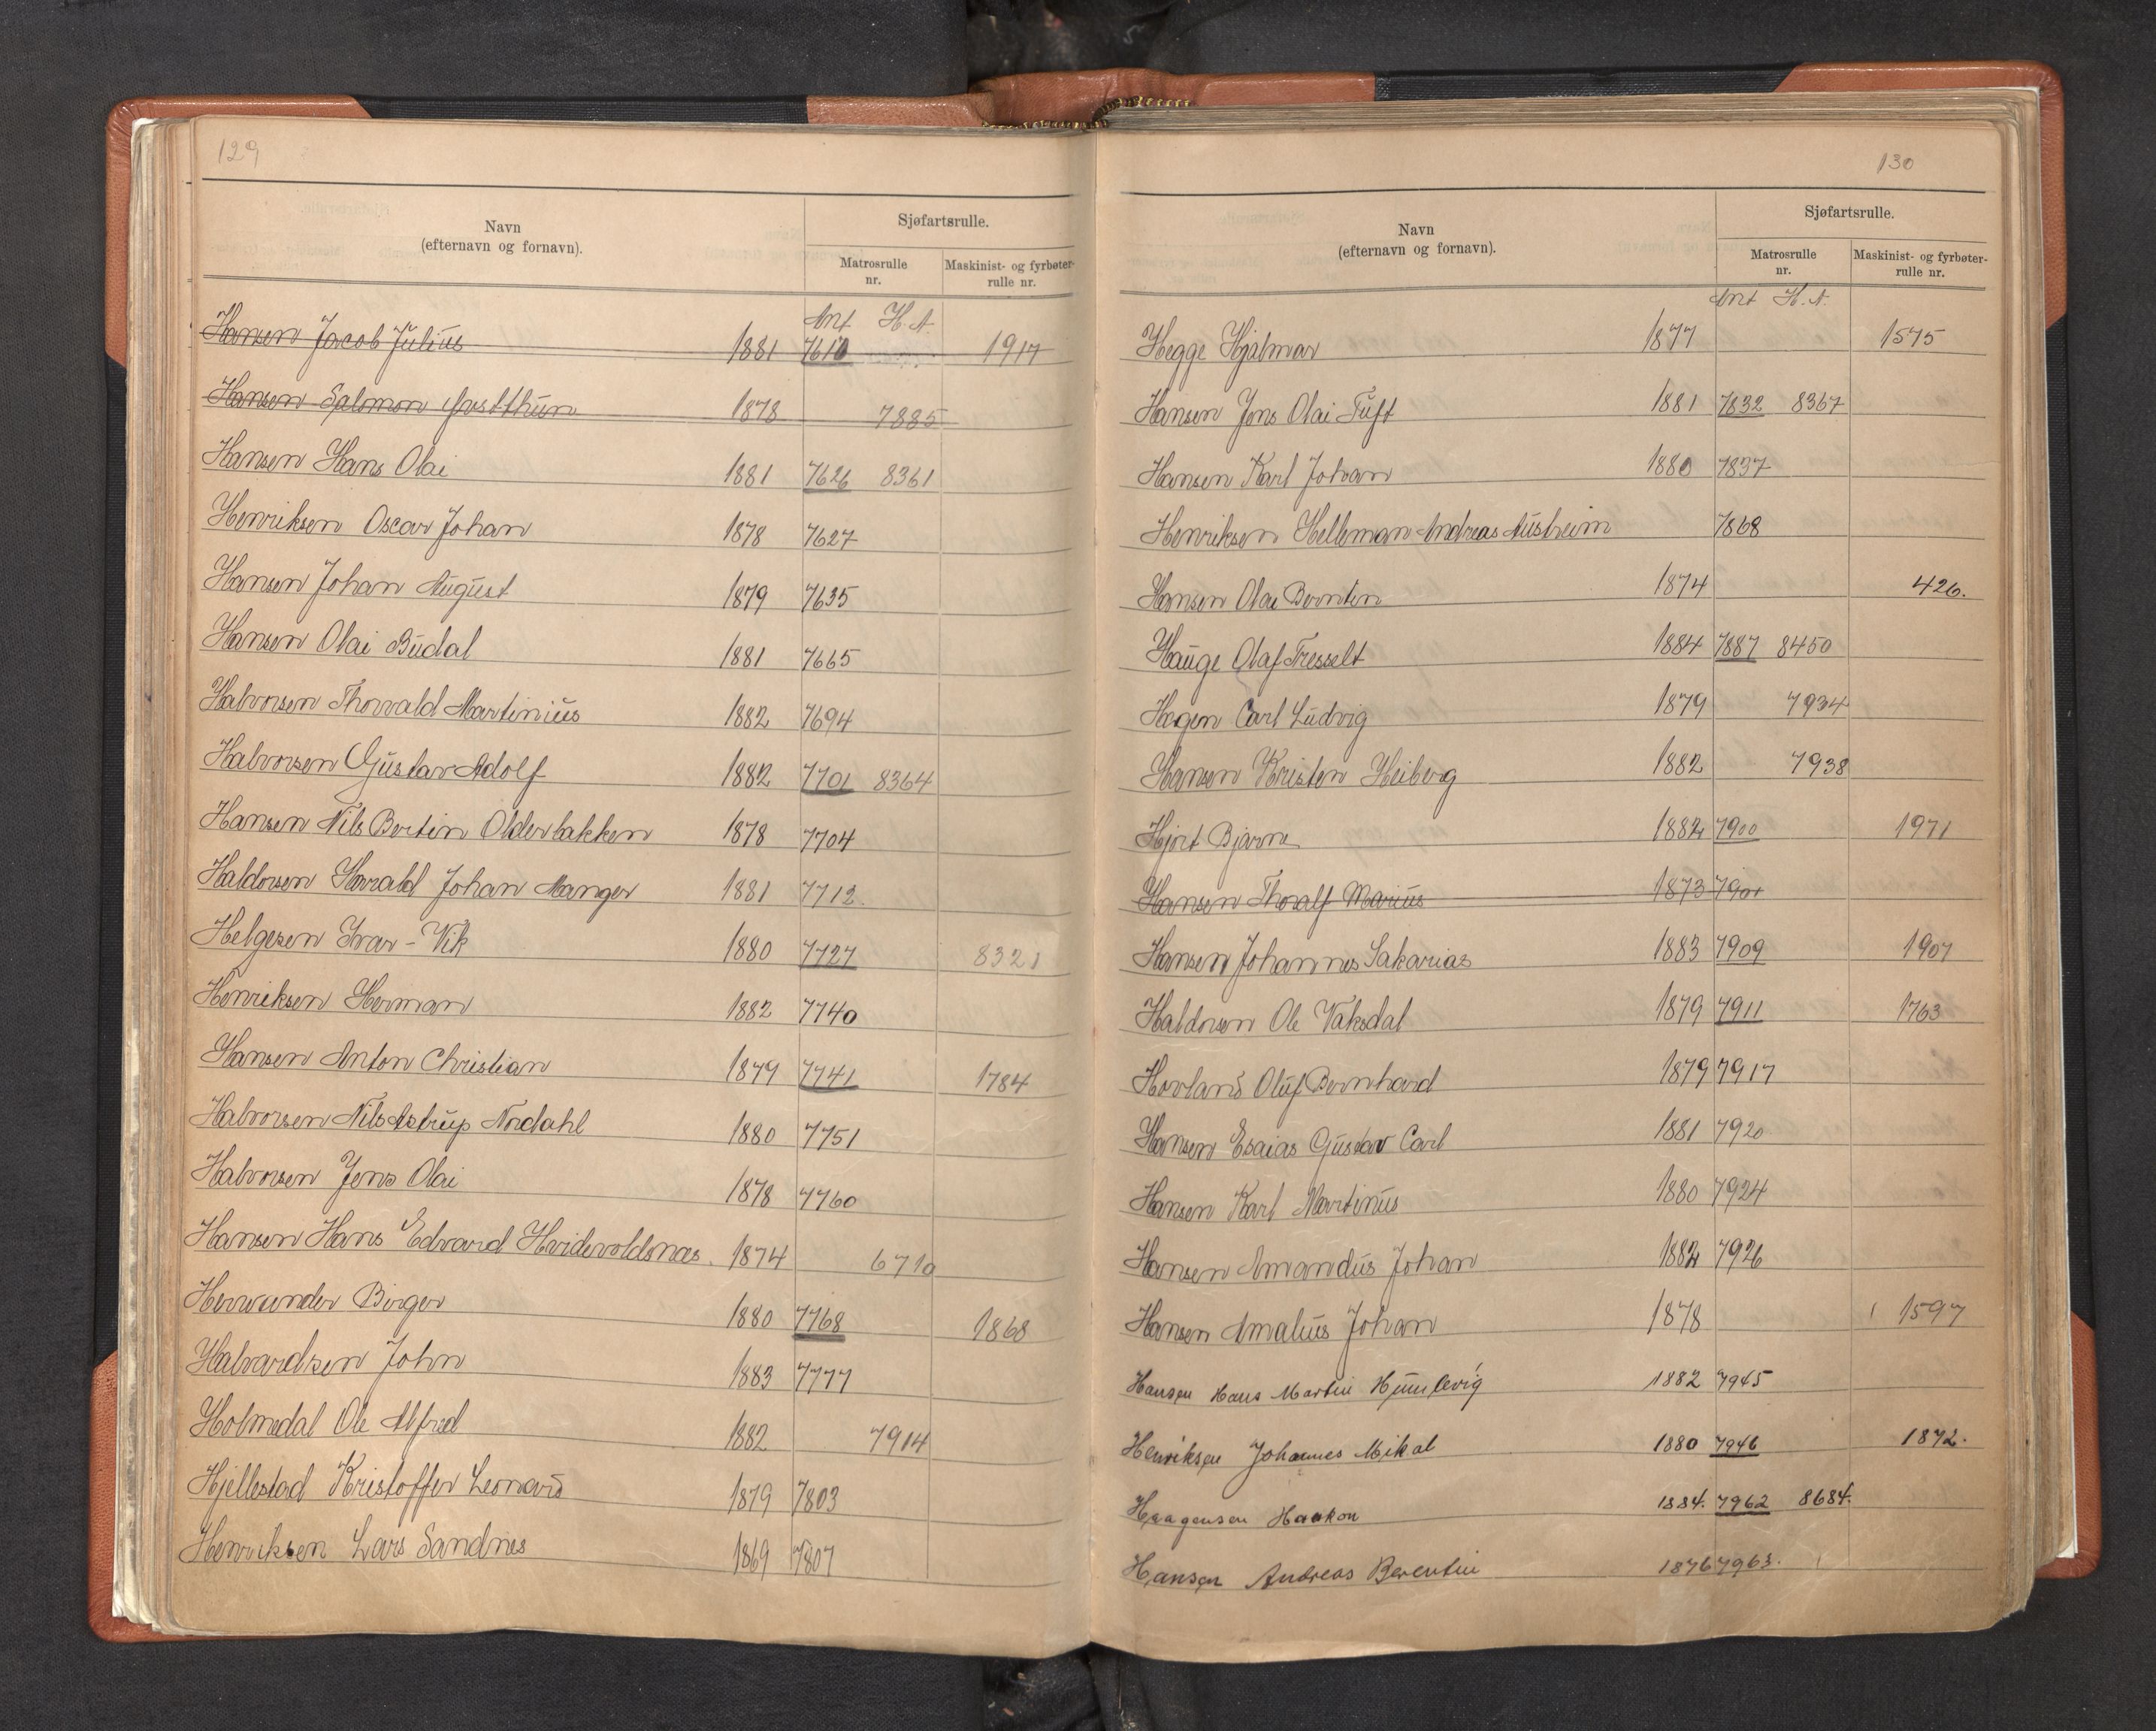 129
Navn
(efternavn og fornavn).
Sjøfartsrulle.
Matrosrulle
nr.
Maskinist- og fyrbøter-
rulle nr.
Ant H.A.
Hansen Jacob Julius 1881 7610 1917
Hansen Salomon 1878 7885
Hansen Hans Olai 1881 7626 8361
Henriksen Oscar Johan 1878 7627
Hansen Johan August 1879 7635
Hansen Olai Budal 1881 7665
Halvorsen Thorvald Martinius 1882 7694
Halvorsen Gustav Adolf 1882 7701 8364
Hansen Nils Bertin Olderbakken 1878 7704
Haldorsen Harald Johan Manger 1881 7712.
Helgesen Ivar - Vik 1880 7727 8321
Henriksen Herman 1882 7740
Hansen Anton Christian 1879 7741 1784
Halvorsen Nils Astrup Nordahl 1880 7751
Halvorsen Jens Olai 1878 7760
Hansen Hans Edvard Hvidevoldsnæs. 1874 6710
Herwander Birger 1880 7768 1868
Halvardsen John 1883 7777
Holmedal Ole Alfred 1882 7914
Hjellestad Kristoffer Leonard 1879 7803
Henriksen Lars Sandnes 1869 7807
130
Navn
(efternavn og fornavn).
Sjøfartsrulle.
Matrosrulle
nr.
Maskinist- og fyrbøter-
rulle nr.
Ant H.A.
Hegge Hjalmar 1877 1575
Hansen Jens Olai Tuft 1881 7832 8367
Hansen Karl Johan 1880 7837
Henriksen Helleman Andreas Austreim 7868
Hansen Olai Berntin 1874 426.
Hauge Olaf Tresselt 1884 7887 8450
Hagen Carl Ludvig 1879 7934
Hansen Kristen Heiberg 1882 7938
Hjort Bjarne 1882 7900 1971
Hansen Thoralf Marius 1873 7901
Hansen Johannes Sakarias 1883 7909 1907
Haldorsen Ole Vaksdal 1879 7911 1763
Hovland Oluf Bernhard 1879 7917
Hansen Esaias Gustav Carl 1881 7920
Hansen Karl Martinus 1880 7924
Hansen Amandus Johan 1882 7926
Hansen Amalius Johan 1878 1597
Hansen Hans Martin 1882 7945
Henriksen Johannes Mikal 1880 7946 1872.
Haagensen Haakon 1884. 7962 8684.
Hansen Andreas Berentin 1876 7963.